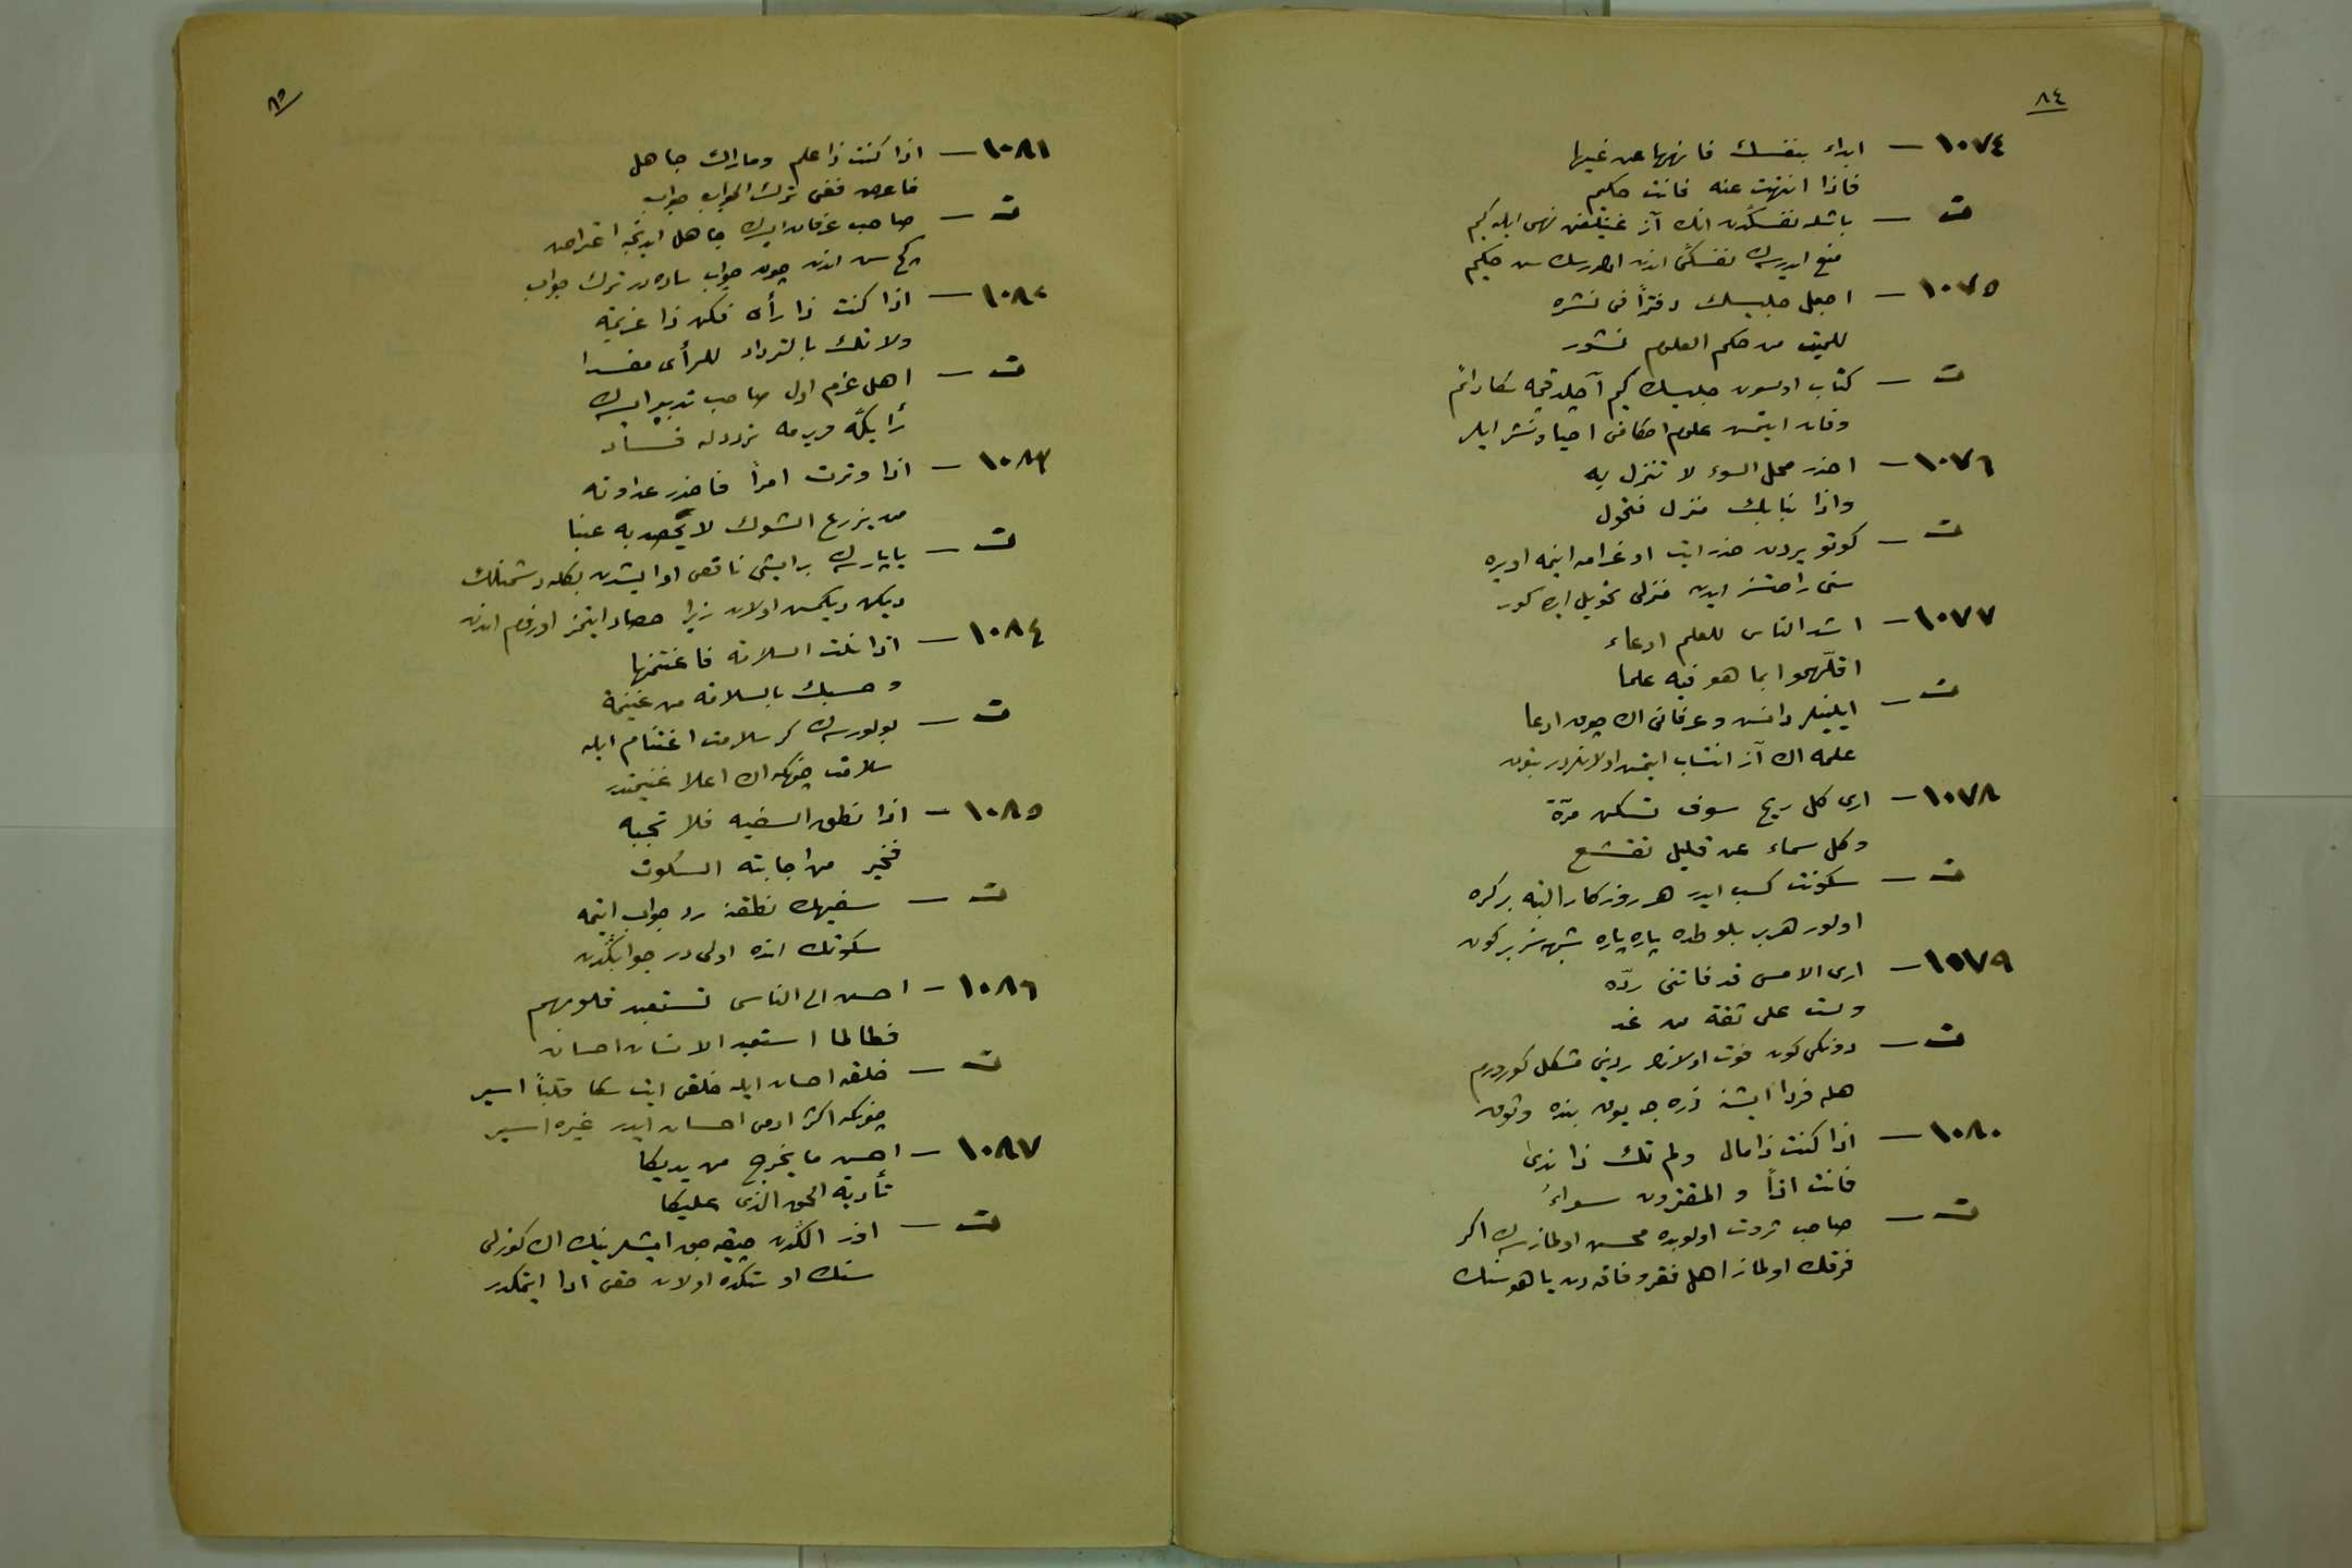 ٨٤
١٠٧٤ — ابداء بنفسك فانهها عن غيها
فاذا انتهت عنه فانت حكيم
ت — باشله نفسكدن انك آز غيتلغن نهى ايله كيم
منع ايدرسك نفسكى اندن اولورسك سن حكيم
١٠٧٥ — اجعل جليسك دفتراً فى نشره
للميت من حكم العلوم نشور
ت — كتاب اولسون جليسك كيم آچلدقچه سكا دائم
وفات ايتمش علوم احكامن احيا و نشر ايلر
١٠٧٦ — احذر محل السوء لا تنزل به
واذا نبا بك منزل فتحول
ت — كوتو يردن حذر ايت اوغرامه اينمه اويره
سنى راحتسز ايدن منزلى تحويل ايله كور
١٠٧٧ — اشد الناس للعلم ادعاء
اقلّهموا بما هو فيه علما
ت — ايلينلر دانش و عرفانى اك چوق ادعا
علمه اك آز انتساب ايتمش اولانلردر بتون
١٠٧٨ — ارى كل ريح سوف تسكن مرّة
وكل سماء عن قليل تقشع
ت — سكونت كسب ايدر هر روزكار البته بر كره
اولور هر بر بلوطده پاره پاره شبهه‌سز بر كون
١٠٧٩ — ارى الامس قد فاتنى ردّه
ولست على ثقة من غد
ت — دونكى كون فوت اولدى ردينى مشكل كورورم
هله فردا ايشنه ذره جه يوق بنده وثوق
١٠٨٠ — اذا كنت ذا مال ولم تك ذا ندى
فانت اذاً و المقترون سواءُ
ت — صاحب ثروت اولوبده محسن اولمازسه‌ك اكر
فرقك اولماز اهل فقر و فاقه دن يا هو سنك
٨٥
١٠٨١ — اذا كنت ذا علم وماراك جاهل
فاعرض ففى ترك الجواب جواب
ت — صاحب عرفان ايسه‌ك جاهل ايدنجه اعتراض
كچ سن اندن چون جواب ساده در ترك جواب
١٠٨٢ — اذا كنت ذا رأى فكن ذا عزيمة
ولا تك بالترداد للرأى مفسدا
ت — اهل عزم اول صاحب تدبير ايسه‌ك
رأيكه ويرمه تردد له فساد
١٠٨٣ — اذا وترت امرأً فاحذر عداوته
من يزرع الشوك لا يحصد به عنبا
ت — ياپارسه‌ك بر ايشى ناقص او ايشدن بكله دشمنلك
ديكن ديكمش اولان زيرا حصاد ايتمز اوزوم اندن
١٠٨٤ — اذا نلت السلامة فاغتنمها
وحسبك بالسلامة من غنيمة
ت — بولورسه‌ك كر سلامت اغتنام ايله
سلامت چونكه اك اعلا غنيمتدر
١٠٨٥ — اذا نطق السفيه فلا تجبه
فخير من اجابته السكوت
ت — سفيهك نطقنه رد جواب ايتمه
سكوتك انده اولى در جوابكدن
١٠٨٦ — احسن الى الناس تستعبد قلوبهم
فطالما استعبد الانسان احسان
ت — خلقه احسان ايله خلقى ايت سكا قلباً اسير
چونكه اكثر ادمى احسان ايدر غيره اسير
١٠٨٧ — احسن ما يخرج من يديكا
تأدية الحق الذى عليكا
ت — اوز الكدن چيقه جق ايشلرينك اك كوزلى
سنك اوستكده اولان حقى ادا ايتمكدر